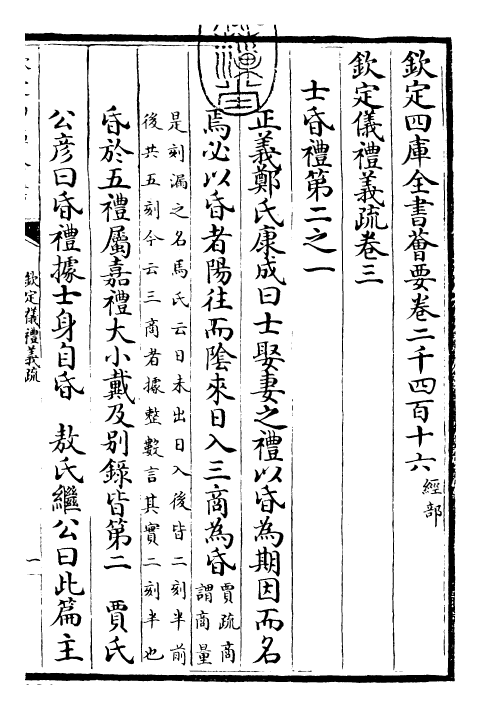 欽定四庫全書薈要卷二千四百十六經部
欽定儀禮義疏卷三
士昏禮第二之一
正義鄭氏康成曰士娶妻之禮以昏為期因而名
焉必以昏者陽往而陰來日入三商為昏賈疏商
謂商量
是刻漏之名馬氏云日未出日入後皆二刻半前
後共五刻今云三商者據整數言其實二刻半也
昏於五禮屬嘉禮大小戴及別錄皆第二　賈氏
公彥曰昏禮據士身自昏　敖氏繼公曰此篇主
欽定儀禮義疏
一